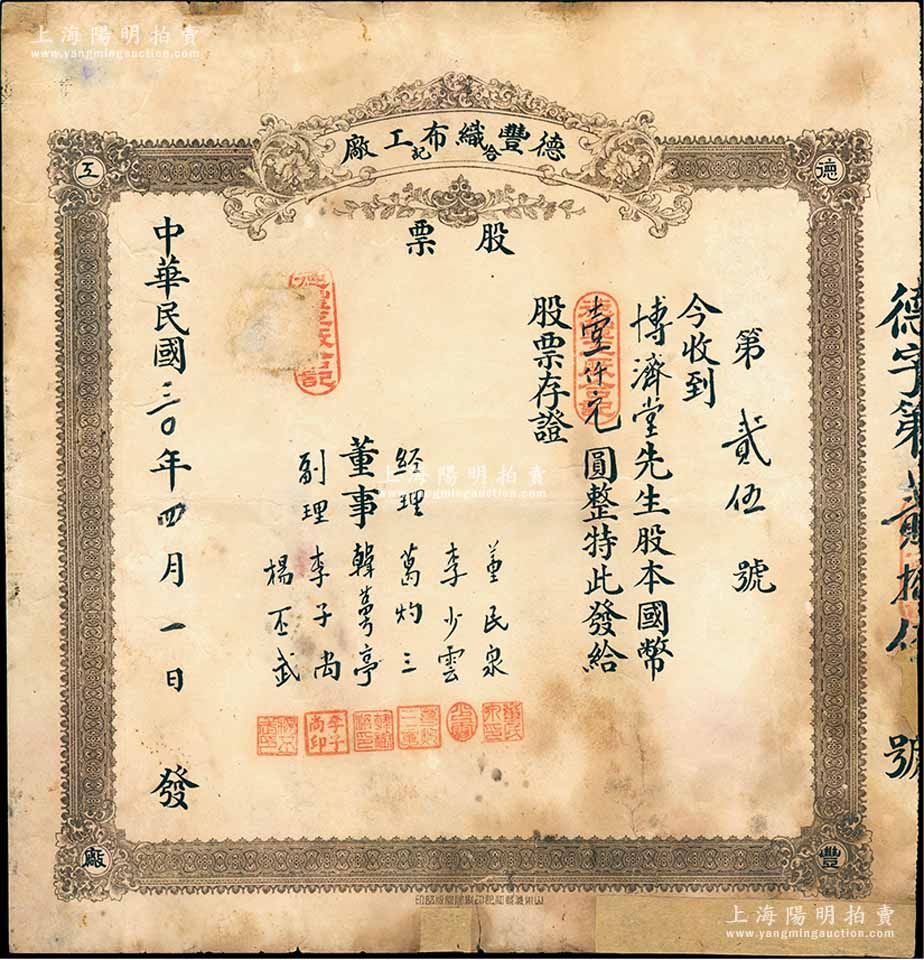 上海陽明拍賣
www.yangmingauction.com
德豐織布工廠
合記
德
豐
工
廠
股票
德字第貳拾伍號
第貳伍號
今收到
博濟堂先生股本國幣
壹仟元圓整特此發給
股票存證
董民泉
李少雲
經理 萬灼三
董事 韓夢亭
副理 李子尚
楊丕武
李子尚印
中華民國三〇年四月一日發
上海陽明拍賣
www.yangmingauction.com
上海陽明拍賣
www.yangmingauction.com